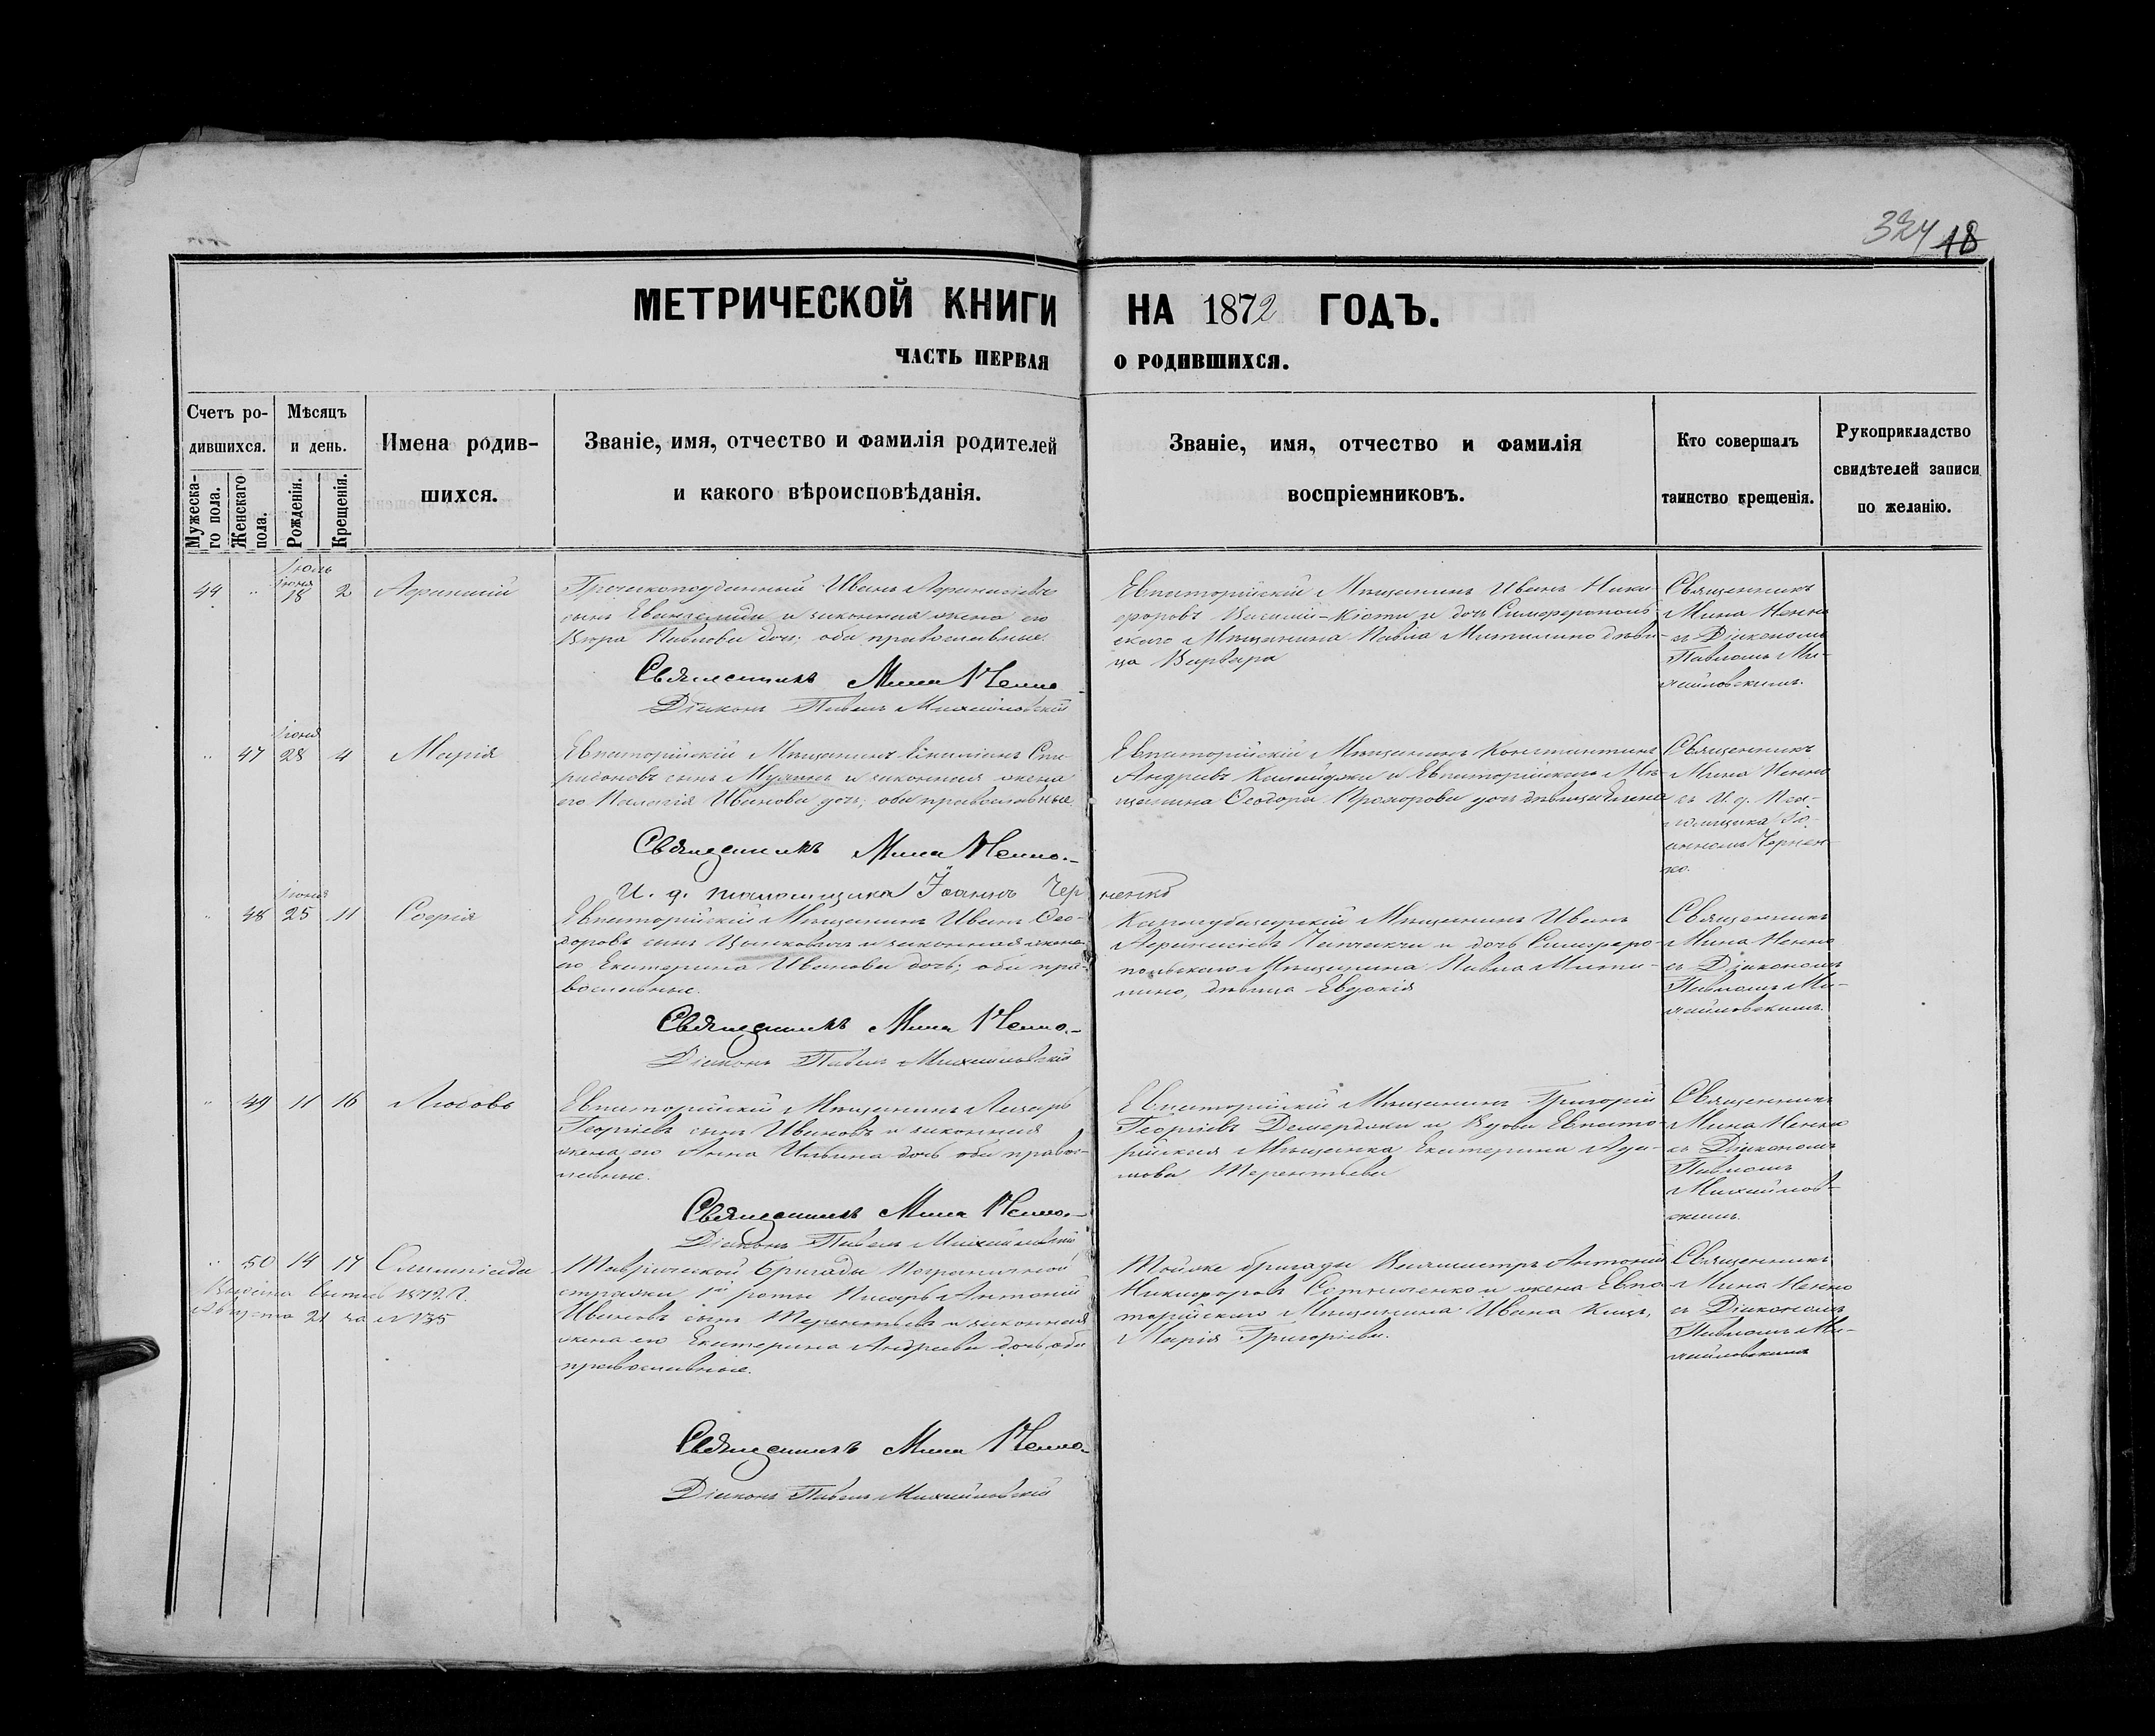 324 18
МЕТРИЧЕСКОЙ КНИГИ НА 1872 ГОДЪ.
ЧАСТЬ ПЕРВАЯ О РОДИВШИХСЯ.
Счетъ ро-
дившихся.
Мужеска-
го пола.
Женскаго
пола.
Мѣсяцъ
и день.
Рожденія.
Крещенія.
Имена родив-
шихся.
Званіе, имя, отчество и фамилія родителей
и какого вѣроисповѣданія.
Званіе, имя, отчество и фамилія
воспріемниковъ.
Кто совершалъ
таинство крещенія.
Рукоприкладство
свидѣтелей записи
по желанію.
Іюль
44 " Іюня 18 2 Аѳанасій
Греческоподданный Иванъ Аѳанасіевъ
сынъ и законная жена его
Вѣра Павлова дочь; оба православные.
Священникъ Мина Ненно
Діаконъ Павелъ Михайловскій
Евпаторійскій Мѣщанинъ Иванъ Ники-
форовъ и дочь Симферополь-
скаго Мѣщанина Павла Митилино дѣви-
ца Варвара
Священникъ
Мина Ненно
съ Діакономъ
Павломъ Ми-
хайловскимъ.
" 47 Іюня 28 4 Марія
Евпаторійскій Мѣщанинъ Спи-
ридоновъ сынъ и законная жена
его Пелагія Иванова дочь; оба православные
Священникъ Мина Ненно.
И. д. помощника Іоаннъ Черненко
Евпаторійскій Мѣщанинъ Константинъ
Андреевъ Калайджи и Евпаторійскаго Мѣ-
щанина Ѳеодора Прохорова дочь дѣвица Елена
Священникъ
Мина Ненно
съ И. д. По-
мощника Іо-
анномъ Чернен-
ко.
" 48 Іюня 25 11 Софія
Евпаторійскій Мѣщанинъ Иванъ Ѳео-
доровъ сынъ и законная жена
его Екатерина Иванова дочь; оба пра-
вославные.
Священникъ Мина Ненно.
Діаконъ Павелъ Михайловскій
Карасубазарскій Мѣщанинъ Иванъ
Аѳанасіевъ и дочь Симферо-
польскаго Мѣщанина Павла Мити-
лино, дѣвица Евдокія
Священникъ
Мина Ненно
съ Діакономъ
Павломъ Ми-
хайловскимъ.
" 49 11 16 Любовь
Евпаторійскій Мѣщанинъ Лазарь
Георгіевъ сынъ Ивановъ и законная
жена его Анна Ильина дочь оба право-
славные.
Священникъ Мина Ненно.
Діаконъ Павелъ Михайловскій
Евпаторійскій Мѣщанинъ Григорій
Георгіевъ Демерджи и Вдова Евпато-
рійская Мѣщанка Екатерина Ада-
мова Терентьева
Священникъ
Мина Ненно
съ Діакономъ
Павломъ
Михайлов-
скимъ.
" 50 14 17 Олимпіада
Выдана выпись 1872 г.
Августа 21 за № 135
Таврической Бригады Пограничной
стражи 1й роты Писарь Антоній
Ивановъ сынъ Терентьевъ и законная
жена его Екатерина Андреева дочь, оба
православные.
Священникъ Мина Ненно
Діаконъ Павелъ Михайловскій
Тойже бригады Вахмистръ Антоній
Никифоровъ Сотниченко и жена Евпа-
торійскаго Мѣщанина Ивана Кицъ,
Марія Григорьева.
Священникъ
Мина Ненно
съ Діакономъ
Павломъ Ми-
хайловскимъ